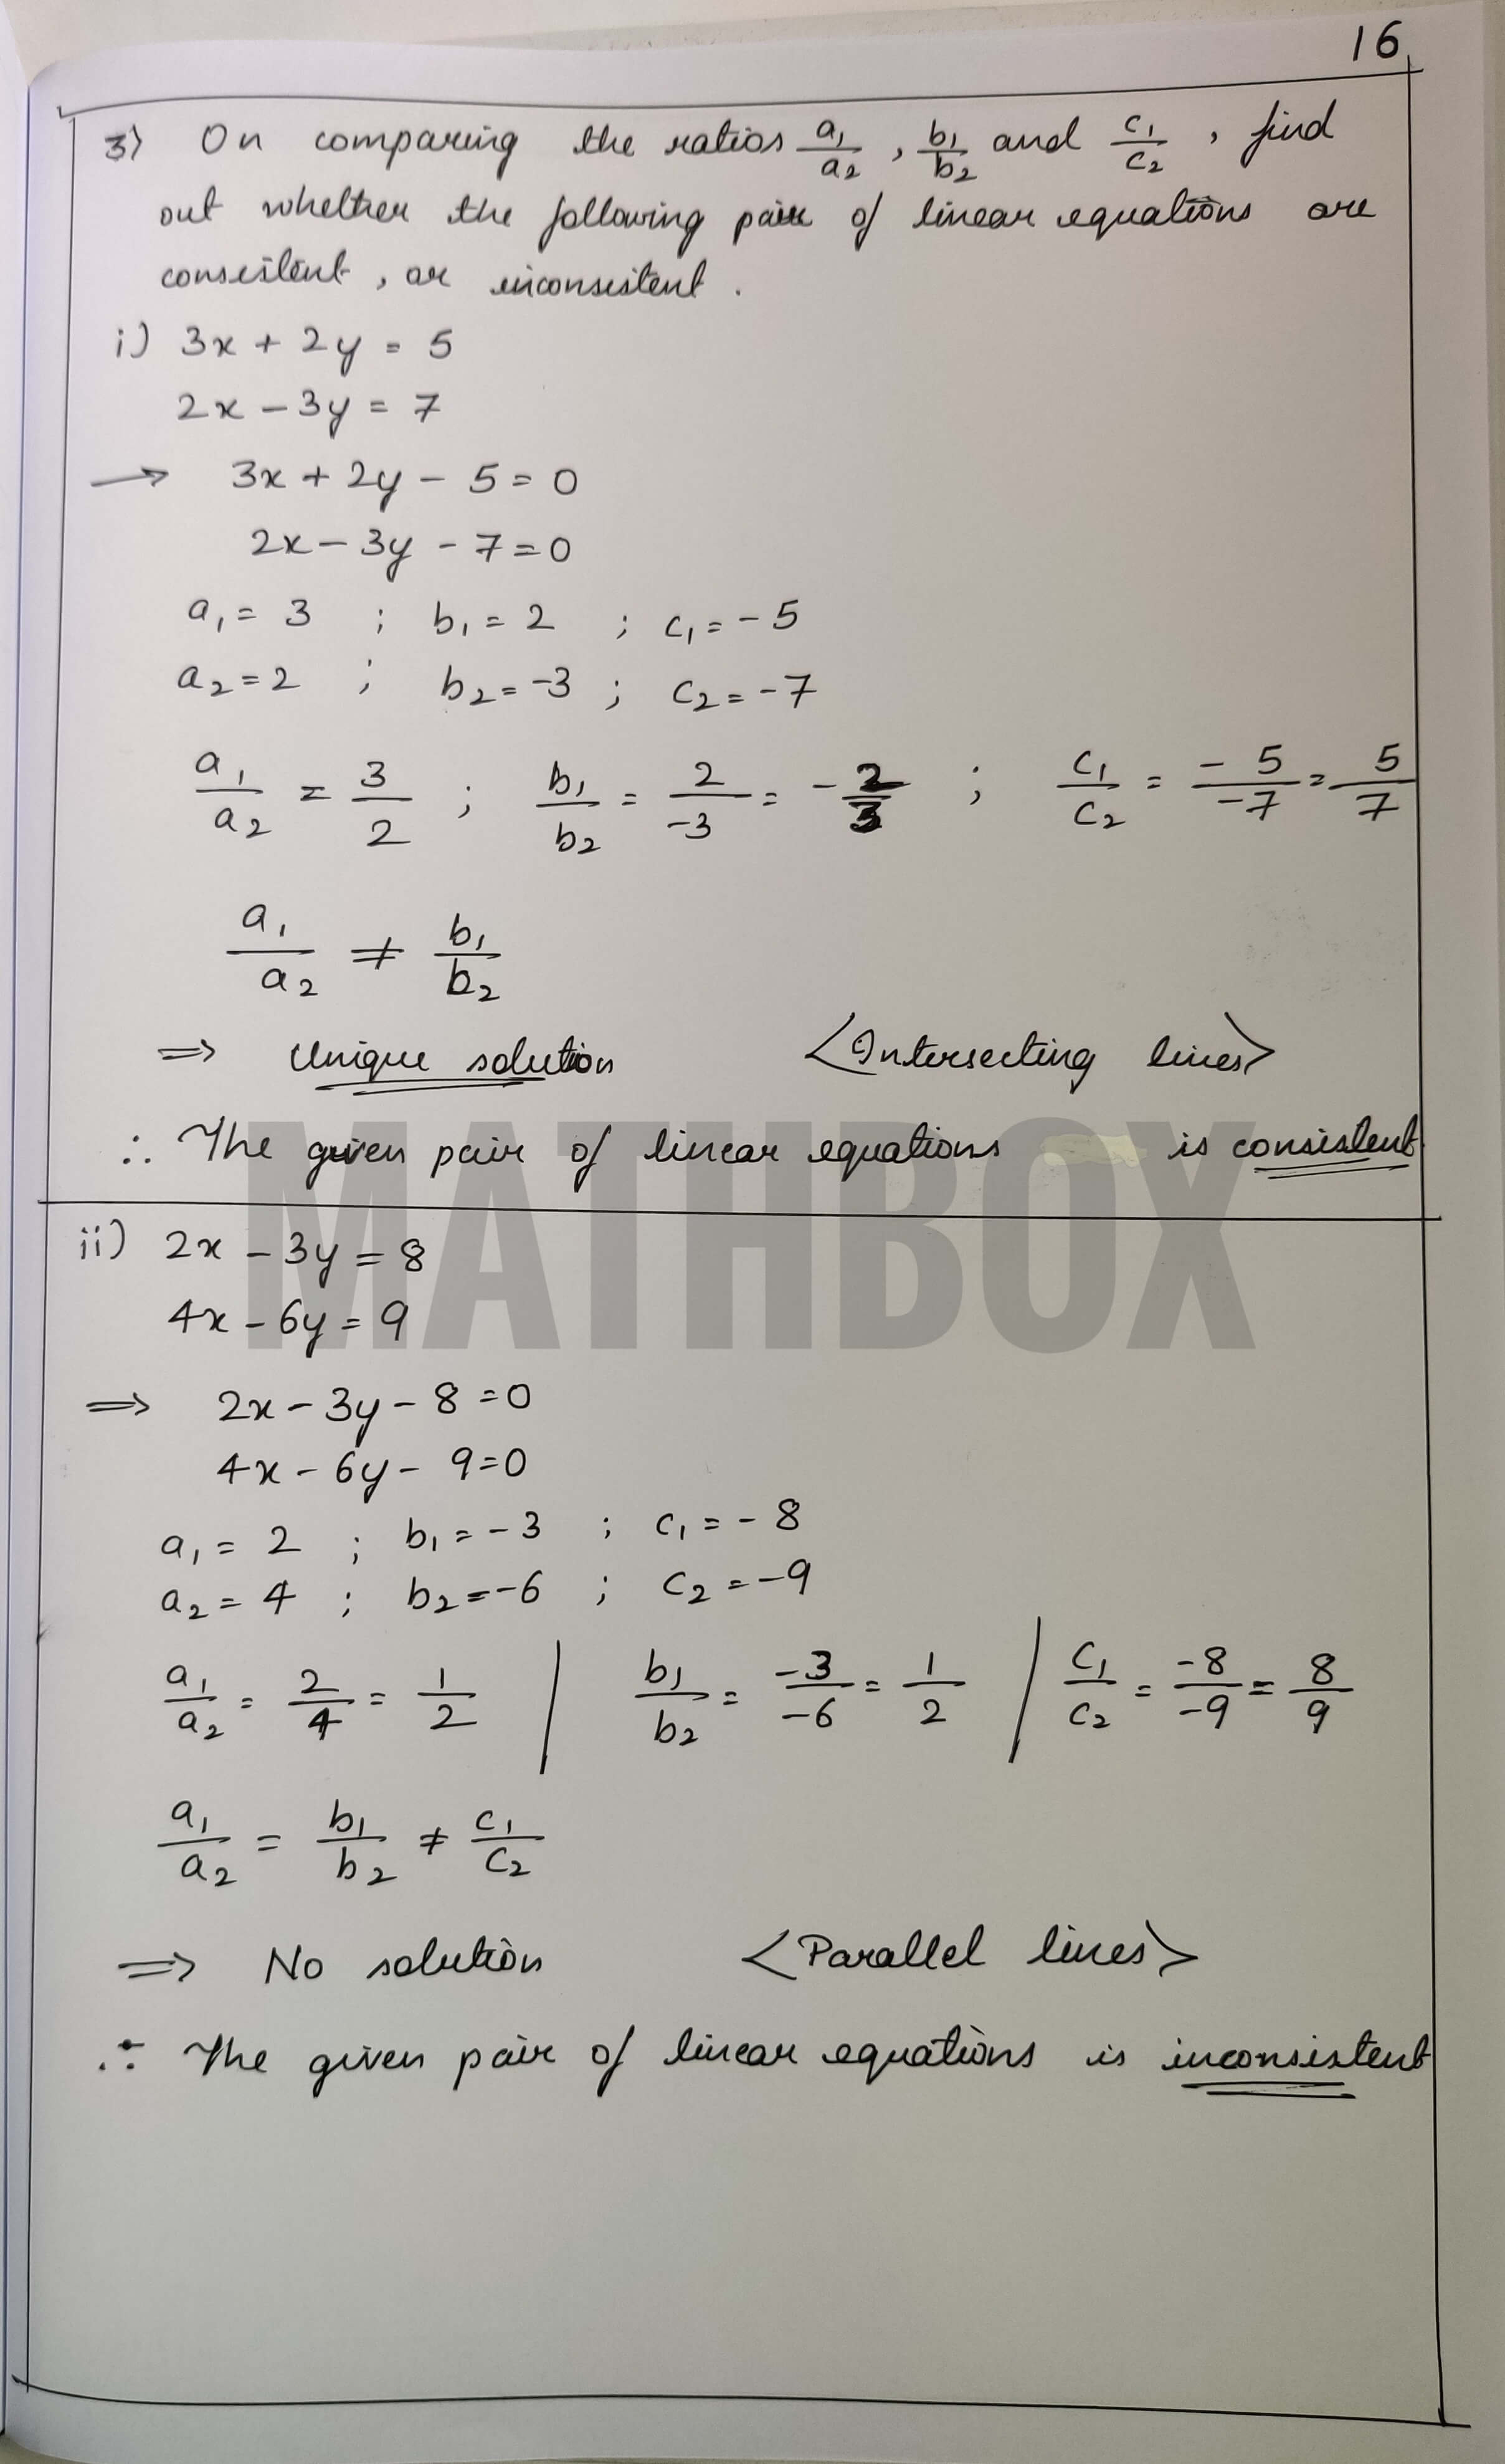 16
3) On comparing the ratios a₁/a₂ , b₁/b₂ and c₁/c₂ , find
out whether the following pair of linear equations are
consistent, or inconsistent.
i) 3x + 2y = 5
2x - 3y = 7
→ 3x + 2y - 5 = 0
2x - 3y - 7 = 0
a₁ = 3 ; b₁ = 2 ; c₁ = -5
a₂ = 2 ; b₂ = -3 ; c₂ = -7
a₁/a₂ = 3/2 ; b₁/b₂ = 2/-3 = -2/3 ; c₁/c₂ = -5/-7 = 5/7
a₁/a₂ ≠ b₁/b₂
⇒ Unique solution <Intersecting lines>
∴ The given pair of linear equations is consistent
MATHBOX
ii) 2x - 3y = 8
4x - 6y = 9
⇒ 2x - 3y - 8 = 0
4x - 6y - 9 = 0
a₁ = 2 ; b₁ = -3 ; c₁ = -8
a₂ = 4 ; b₂ = -6 ; c₂ = -9
a₁/a₂ = 2/4 = 1/2 | b₁/b₂ = -3/-6 = 1/2 | c₁/c₂ = -8/-9 = 8/9
a₁/a₂ = b₁/b₂ ≠ c₁/c₂
⇒ No solution <Parallel lines>
∴ The given pair of linear equations is inconsistent